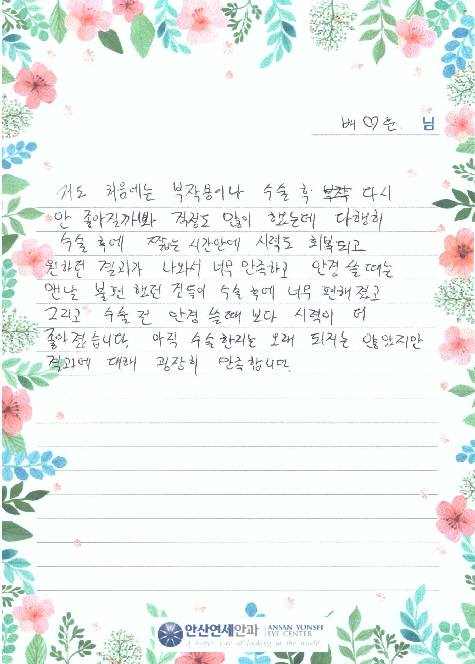 배♡은 님
저도 처음에는 부작용이나 수술 후 다시
안 좋아질까봐 걱정도 많이 했는데 다행히
수술 후에 짧은 시간안에 시력도 회복되고
원하던 결과가 나와서 너무 만족하고 안경 쓸때는
맨날 불편 했던 것들이 수술 후에 너무 편해졌고
그리고 수술 전 안경 쓸때 보다 시력이 더
좋아졌습니다. 아직 수술한지는 오래 되지는 않았지만
결과에 대해 굉장히 만족합니다.
안산연세안과 ANSAN YONSEI
EYE CENTER
A better way of looking at the world